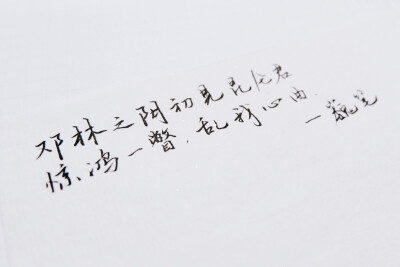 邓林之阴初见昆仑君
惊鸿一瞥,乱我心曲.
一巍笔